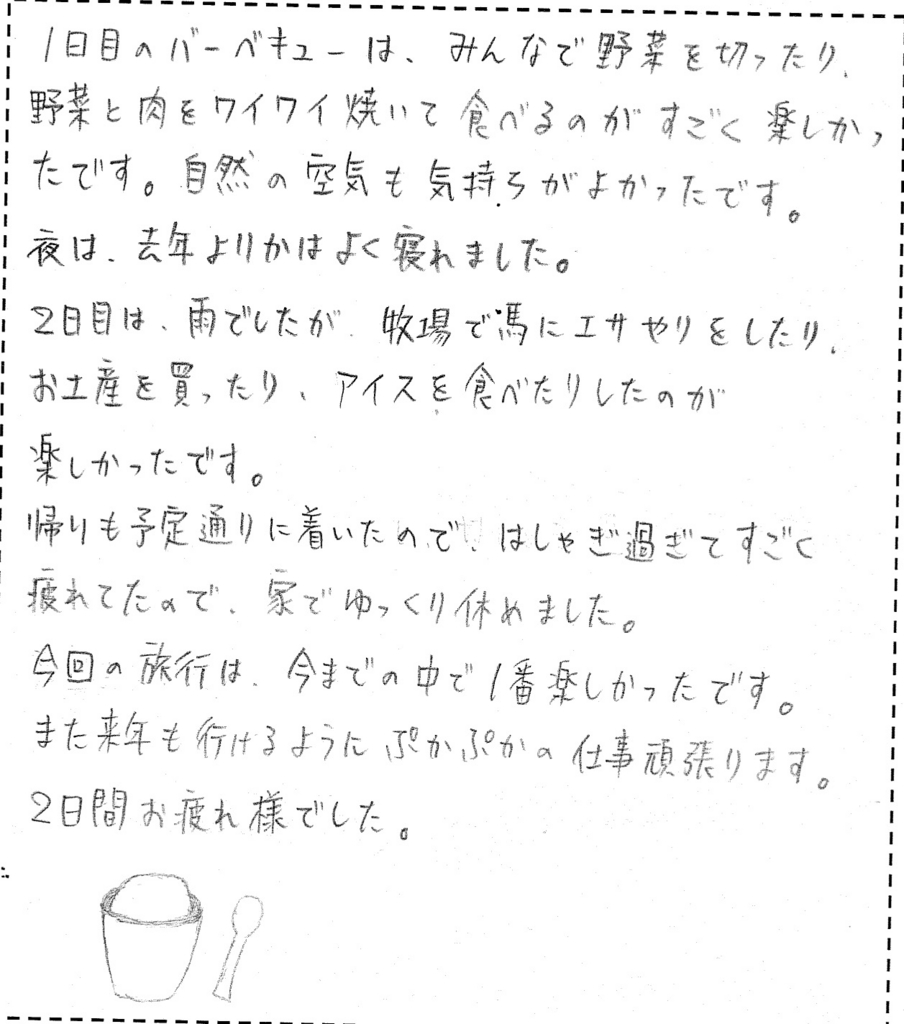 1日目のバーベキューは、みんなで野菜を切ったり、
野菜と肉をワイワイ焼いて食べるのがすごく楽しかっ
たです。自然の空気も気持ちがよかったです。
夜は、去年よりかはよく寝れました。
2日目は、雨でしたが、牧場で馬にエサやりをしたり、
お土産を買ったり、アイスを食べたりしたのが
楽しかったです。
帰りも予定通りに着いたので、はしゃぎ過ぎてすごく
疲れてたので、家でゆっくり休めました。
今回の旅行は、今までの中で1番楽しかったです。
また来年も行けるようにぷかぷかの仕事頑張ります。
2日間お疲れ様でした。